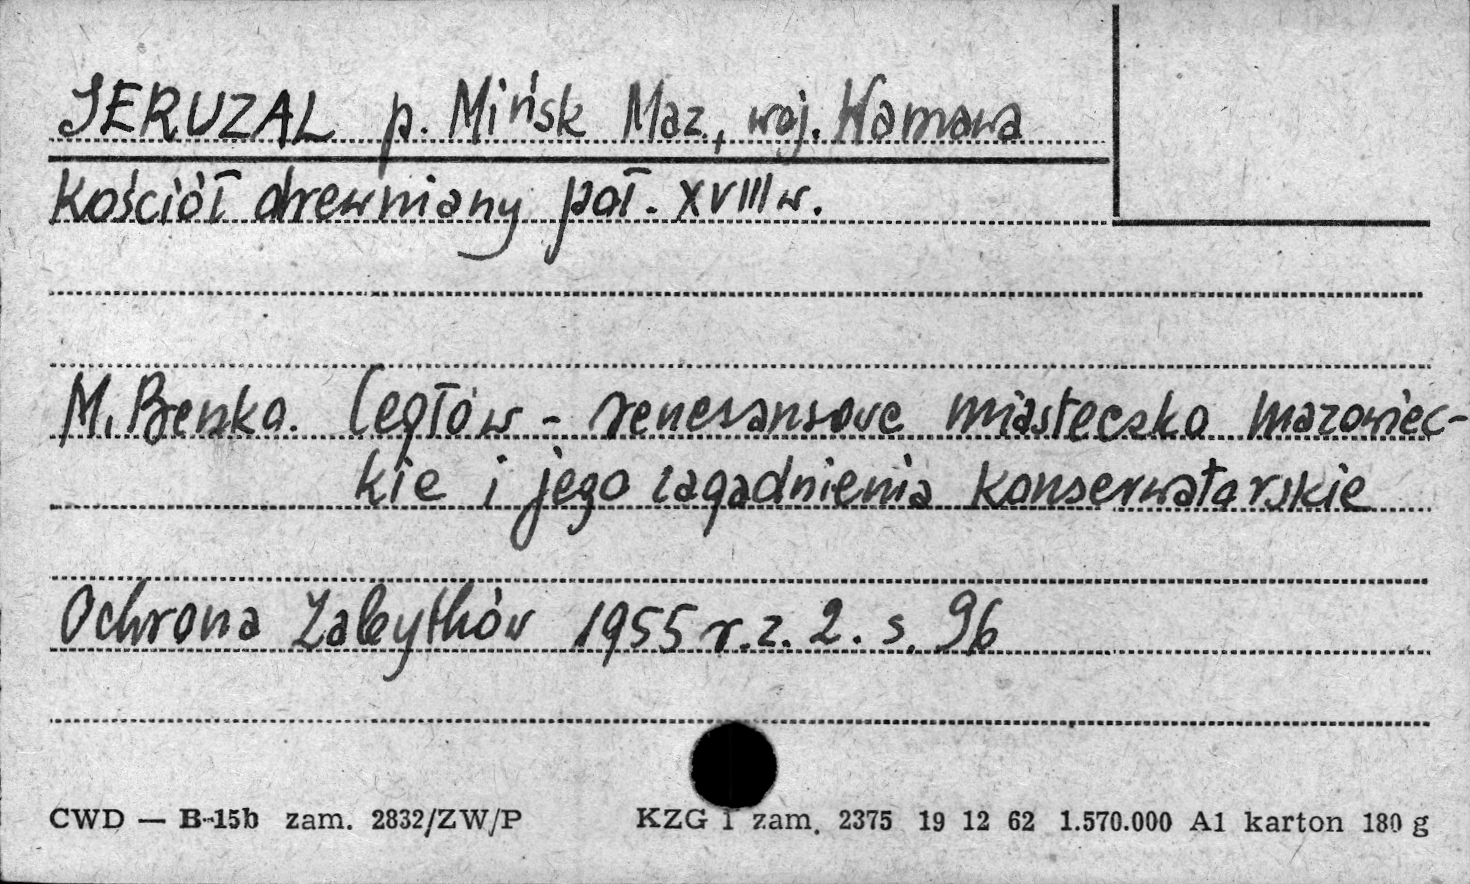 JERUZAL p. Mińsk Maz., woj. Warszawa
Kościół drewniany poł. XVIII w.
M. Benko. Cegłów - renesansowe miasteczko mazowiec-
kie i jego zagadnienia konserwatorskie
Ochrona Zabytków 1955 r. z. 2. s. 96
CWD — B-15b zam. 2832/ZW/P KZG 1 zam. 2375 19 12 62 1.570.000 A1 karton 180 g